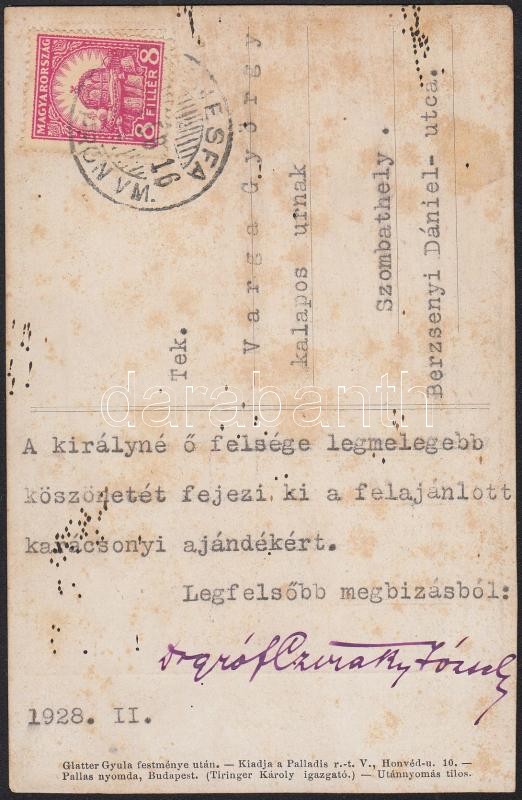 MAGYARORSZÁG
8 FILLÉR 8
16
VM.
Tek.
Varga György
kalapos urnak
Szombathely.
Berzsenyi Dániel- utca.
darabanth
A királyné ő felsége legmelegebb
köszönetét fejezi ki a felajánlott
karácsonyi ajándékért.
Legfelsőbb megbizásból:
Dr gróf Cziráky József
1928. II.
Glatter Gyula festménye után. — Kiadja a Palladis r.-t. V., Honvéd-u. 10. —
Pallas nyomda, Budapest. (Tiringer Károly igazgató.) — Utánnyomás tilos.